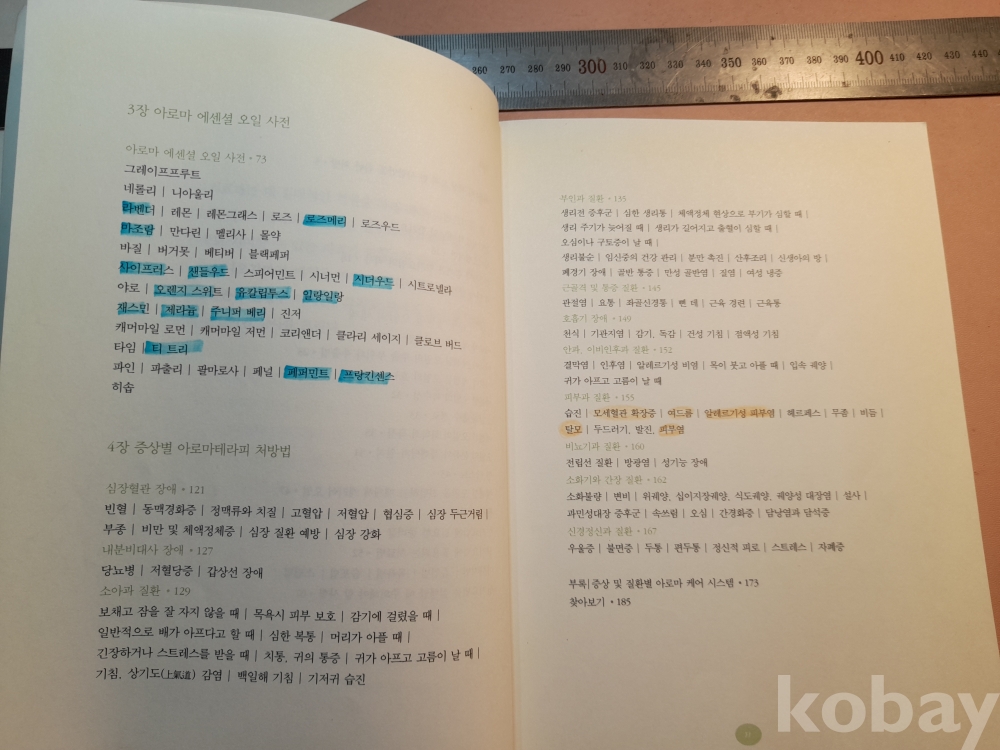 260 270 280 290 300 310 320 330 340 350 360 370 380 390 400 410 420 430 440
3장 아로마 에센셜 오일 사전
아로마 에센셜 오일 사전 • 73
그레이프프루트
네롤리 | 니아울리
라벤더 | 레몬 | 레몬그래스 | 로즈 | 로즈메리 | 로즈우드
마조람 | 만다린 | 멜리사 | 몰약
바질 | 버거못 | 베티버 | 블랙페퍼
사이프러스 | 샌들우드 | 스피어민트 | 시너먼 | 시더우드 | 시트로넬라
야로 | 오렌지 스위트 | 유칼립투스 | 일랑일랑
재스민 | 제라늄 | 주니퍼 베리 | 진저
캐머마일 로먼 | 캐머마일 저먼 | 코리앤더 | 클라리 세이지 | 클로브 버드
타임 | 티 트리
파인 | 파출리 | 팔마로사 | 페널 | 페퍼민트 | 프랑킨센스
히솝
4장 증상별 아로마테라피 처방법
심장혈관 장애 • 121
빈혈 | 동맥경화증 | 정맥류와 치질 | 고혈압 | 저혈압 | 협심증 | 심장 두근거림 |
부종 | 비만 및 체액정체증 | 심장 질환 예방 | 심장 강화
내분비대사 장애 • 127
당뇨병 | 저혈당증 | 갑상선 장애
소아과 질환 • 129
보채고 잠을 잘 자지 않을 때 | 목욕시 피부 보호 | 감기에 걸렸을 때 |
일반적으로 배가 아프다고 할 때 | 심한 복통 | 머리가 아플 때 |
긴장하거나 스트레스를 받을 때 | 치통, 귀의 통증 | 귀가 아프고 고름이 날 때 |
기침, 상기도(上氣道) 감염 | 백일해 기침 | 기저귀 습진
부인과 질환 • 135
생리전 증후군 | 심한 생리통 | 체액정체 현상으로 부기가 심할 때 |
생리 주기가 늦어질 때 | 생리가 길어지고 출혈이 심할 때 |
오심이나 구토증이 날 때 |
생리불순 | 임신중의 건강 관리 | 분만 촉진 | 산후조리 | 신생아의 방 |
폐경기 장애 | 골반 통증 | 만성 골반염 | 질염 | 여성 냉증
근골격 및 통증 질환 • 145
관절염 | 요통 | 좌골신경통 | 삔 데 | 근육 경련 | 근육통
호흡기 장애 • 149
천식 | 기관지염 | 감기, 독감 | 건성 기침 | 점액성 기침
안과, 이비인후과 질환 • 152
결막염 | 인후염 | 알레르기성 비염 | 목이 붓고 아플 때 | 입속 궤양 |
귀가 아프고 고름이 날 때
피부과 질환 • 155
습진 | 모세혈관 확장증 | 여드름 | 알레르기성 피부염 | 헤르페스 | 무좀 | 비듬 |
탈모 | 두드러기, 발진, 피부염
비뇨기과 질환 • 160
전립선 질환 | 방광염 | 성기능 장애
소화기와 간장 질환 • 162
소화불량 | 변비 | 위궤양, 십이지장궤양, 식도궤양, 궤양성 대장염 | 설사 |
과민성대장 증후군 | 속쓰림 | 오심 | 간경화증 | 담낭염과 담석증
신경정신과 질환 • 167
우울증 | 불면증 | 두통 | 편두통 | 정신적 피로 | 스트레스 | 자폐증
부록|증상 및 질환별 아로마 케어 시스템 • 173
찾아보기 • 185
kobay